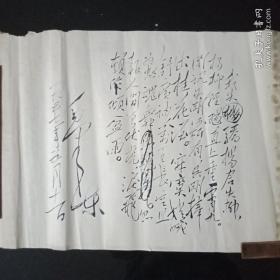 我失骄杨君失柳
杨柳轻飏直上重霄九
问讯吴刚何所有吴刚捧
出桂花酒。寂寞嫦娥
舒广袖万里长空且
为忠魂舞。忽
报人间曾伏虎泪飞
顿作倾盆雨。
毛泽东